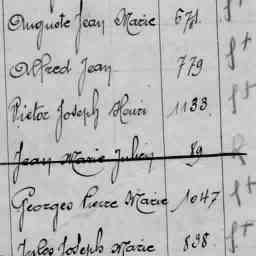 Auguste Jean Marie 671. f+
Alfred Jean 779 f+
Victor Joseph Henri 1133 f+
Jean Marie Julien 89
Georges Pierre Marie 1047 f+
Jules Joseph Marie 898. f+